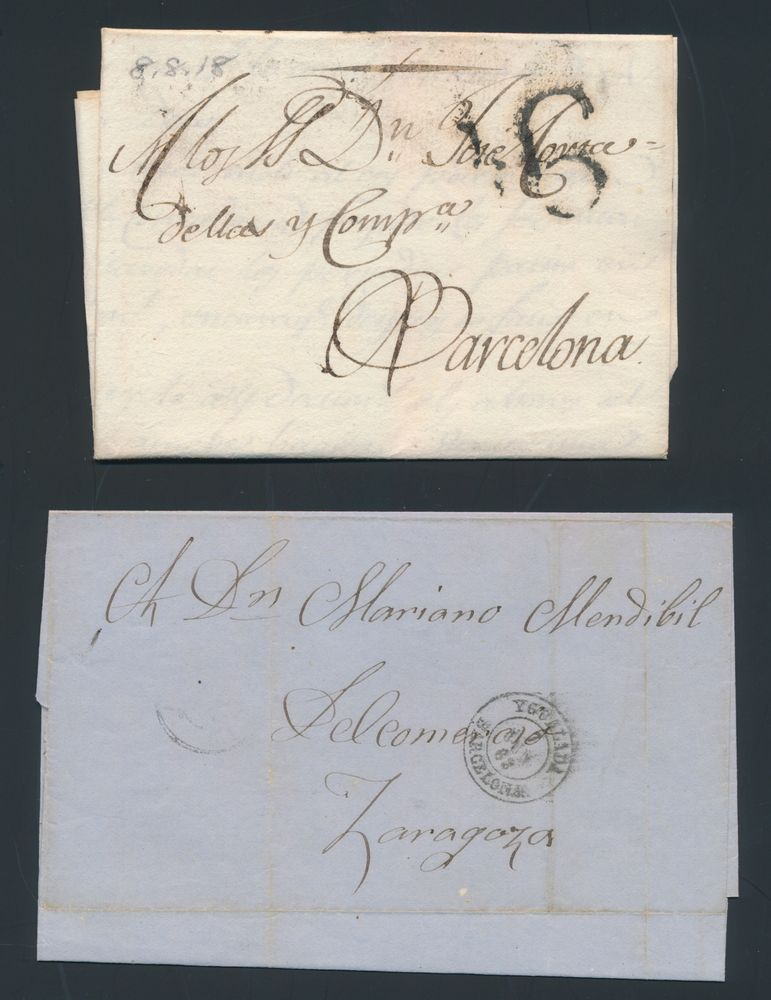 8.8.18
A los SS Dn. Jose Torra=
dellas y Compa.
Barcelona
A Dn Mariano Mendibil
Del comercio
Zaragoza
YGUALADA
BARCELONA